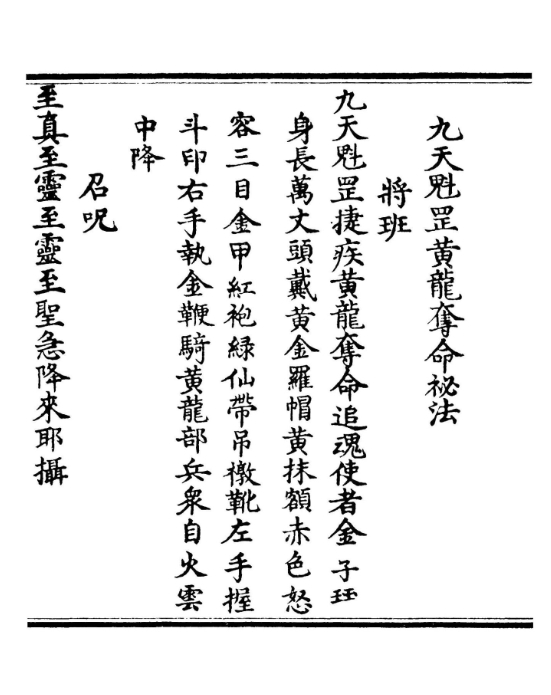 九天魁罡黃龍奪命祕法
將班
九天魁罡捷疾黃龍奪命追魂使者金子珏
身長萬丈頭戴黃金羅帽黃抹額赤色怒
容三目金甲紅袍綠仙帶吊橔靴左手握
斗印右手執金鞭騎黃龍部兵衆自火雲
中降
召呪
至真至靈至靈至聖急降來耶攝